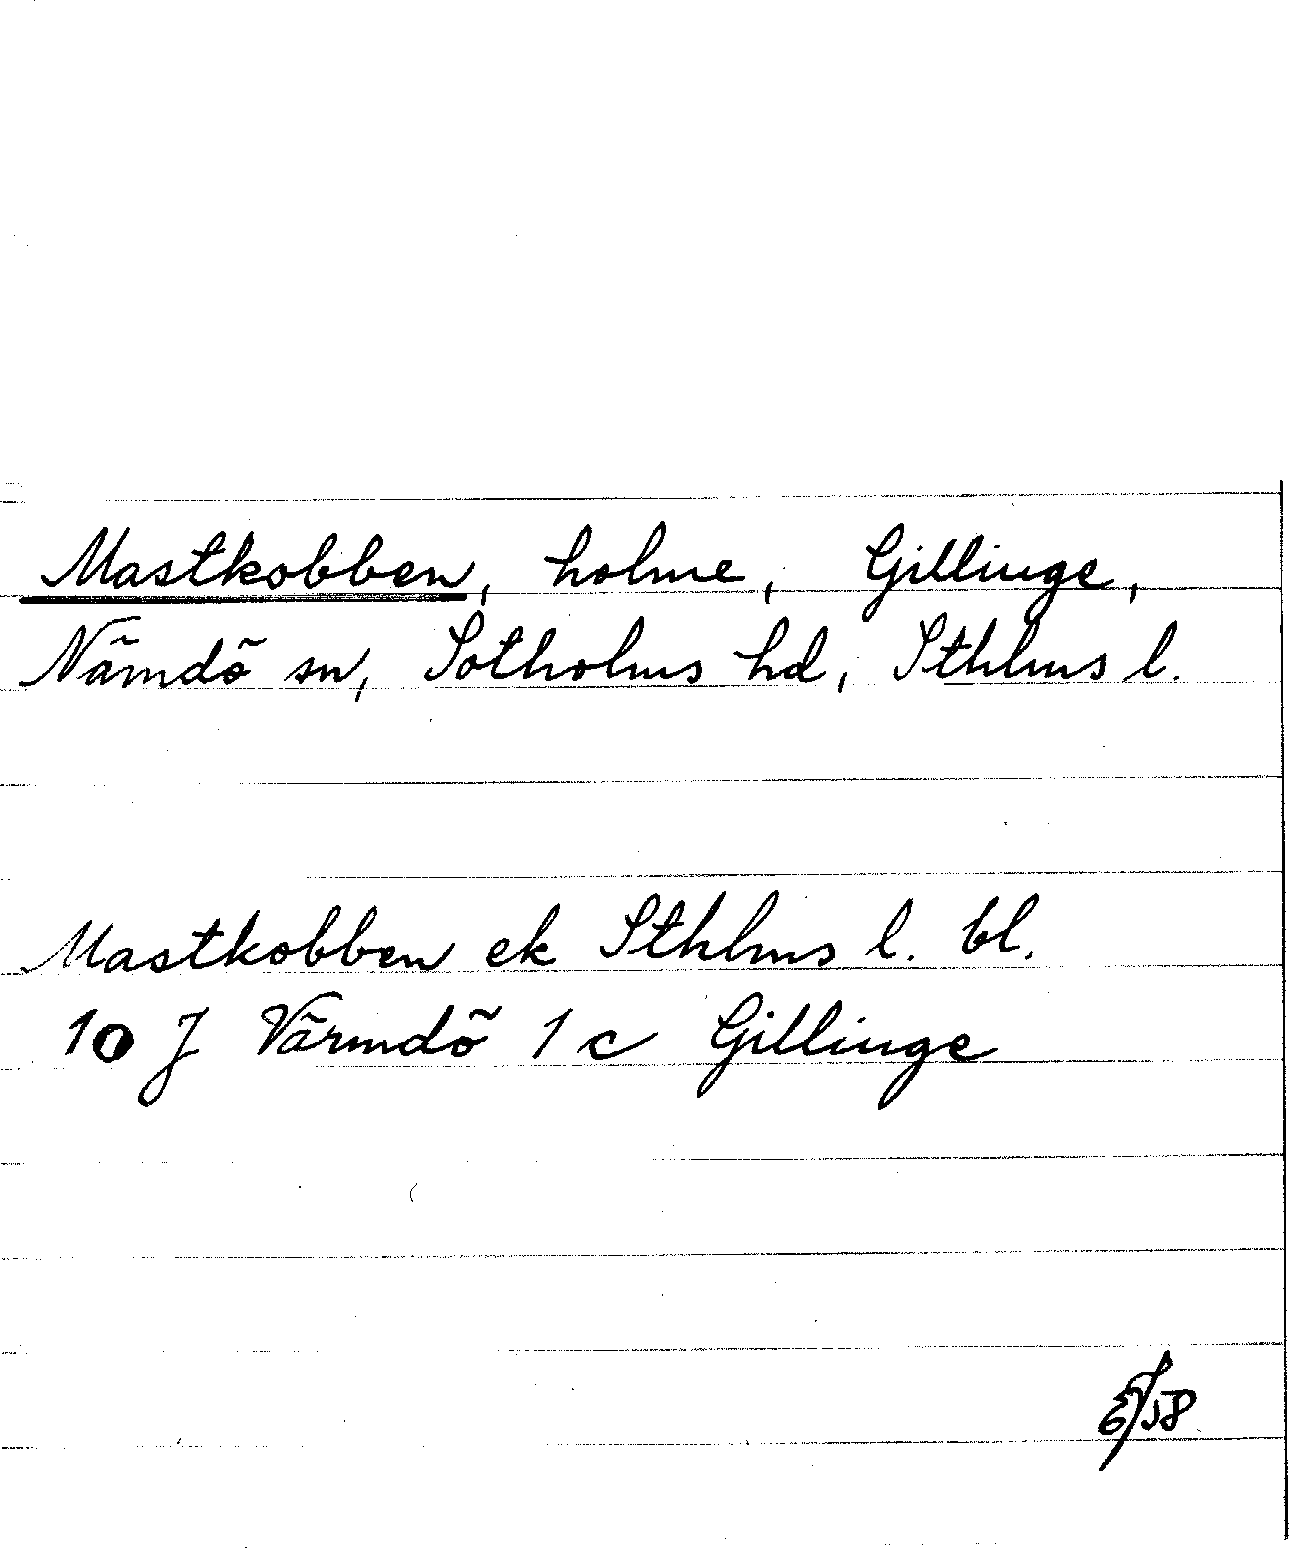 Mastkobben, holme, Gillinge,
Nämdö sn, Sotholms hd, Sthlms l.
Mastkobben ek Sthlms l. bl.
10 J Värmdö 1 c Gillinge